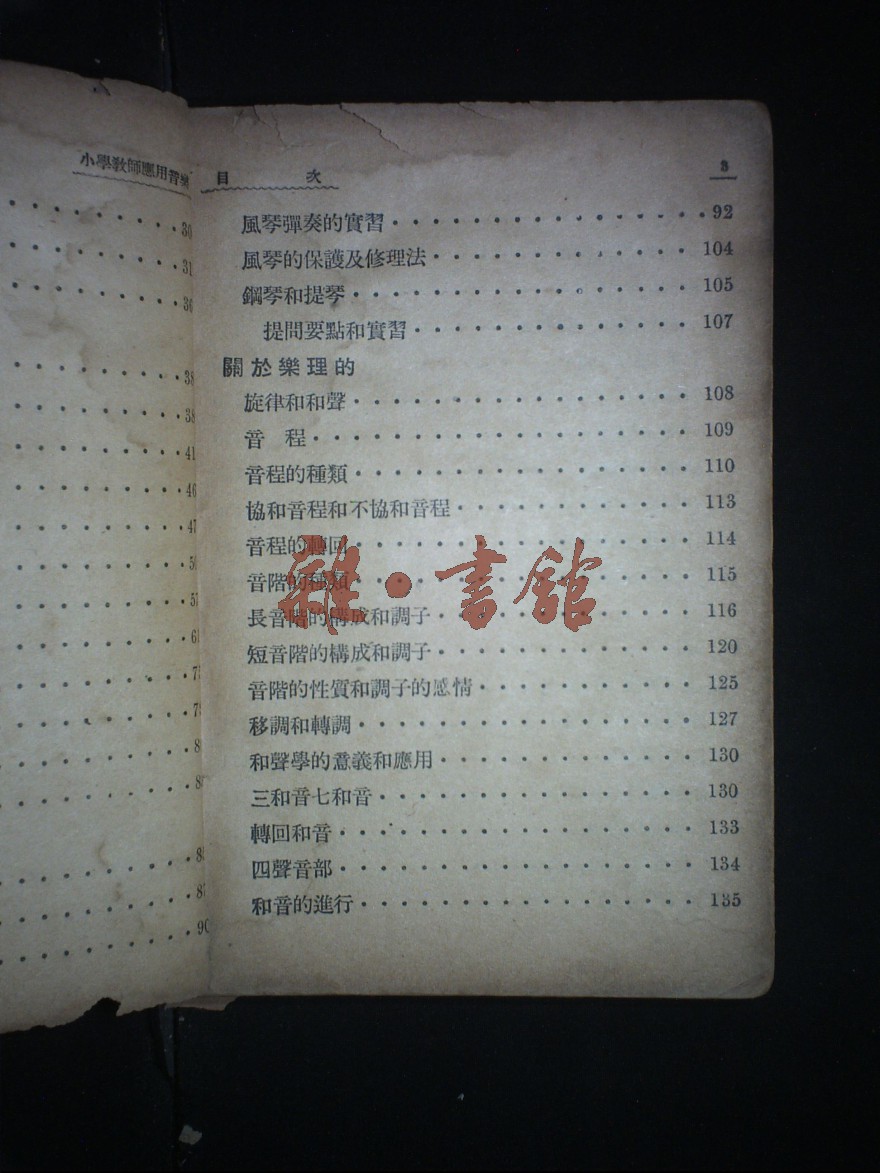 小學教師應用音樂
30
31
36
38
38
41
46
47
90
目 次 3
風琴彈奏的實習 92
風琴的保護及修理法 104
鋼琴和提琴 105
提問要點和實習 107
關於樂理的
旋律和和聲 108
音 程 109
音程的種類 110
協和音程和不協和音程 113
音程的轉回 114
音階的種類 115
長音階的構成和調子 116
短音階的構成和調子 120
音階的性質和調子的感情 125
移調和轉調 127
和聲學的意義和應用 130
三和音七和音 130
轉回和音 133
四聲音部 134
和音的進行 135
雜·書館